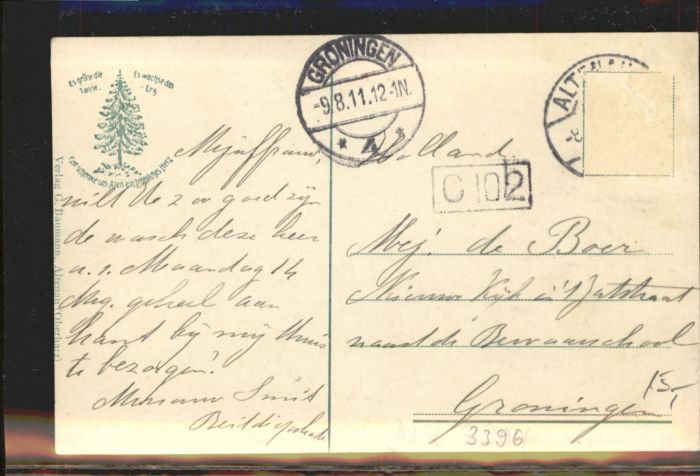 Es grüne die
Tanne,
Es wachse das
Erz
Gott schenke uns Allen ein fröhliches Herz
Verlag G. Baumann, Altenau (Oberharz)
GRONINGEN
-9.8.11.12-1N.
* 4 *
ALTENAU
C 102
Mejuffrouw,
wilt U zoo goed zijn
de wasch deze keer
a.s. Maandag 14
Aug. geheel aan
kant bij mij thuis
te bezorgen?
Mevrouw Smit
Holland
Mej. de Boer
Nieuwe Kijk in 't Jatstraat
naast de Bewaarschool
Groningen
15,-
3396